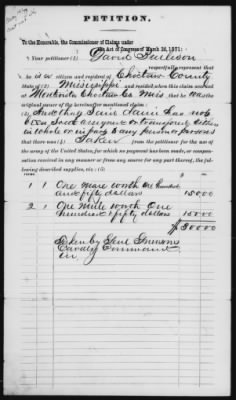 PETITION.
To the Honorable, the Commissioner of Claims under
the Act of Congress of March 3d, 1871:
Your petitioner (1) David
respectfully represent that
he is a citizen and resident of Choctaw County
State of (2) Mississippi and resided when this claim accrued
at Choctaw Co. Miss that he was the
original owner of the hereinafter mentioned claim:
(3) And that Said Claim has not
been sold assigned or transferred either
in whole or in part to any person or persons
that there was (4) Taken from the petitioner for the use of
the army of the United States, for which no payment has been made, or compensation
received in any manner or from any source for any part thereof, the following
described supplies, viz: (5)
1 1 One mare worth One Hundred
and fifty dollars 150 00
2 1 One Mule worth One
hundred & fifty dollars 150 00
$300 00
Taken by Genl
Cavalry Command
in